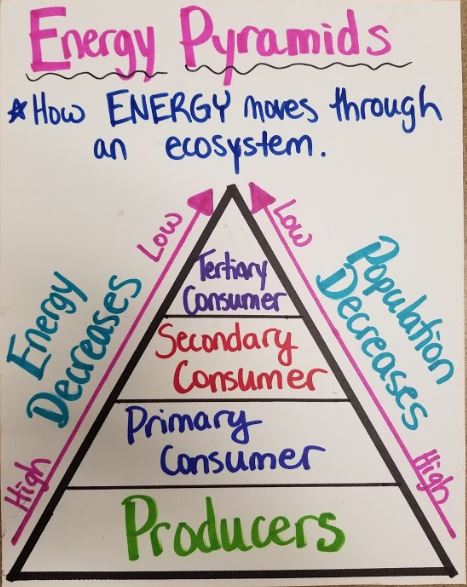 Energy Pyramids
*How ENERGY moves through
an ecosystem.
Low
Low
Energy
Decreases
Population
Decreases
Tertiary
Consumer
Secondary
Consumer
Primary
Consumer
High
High
Producers